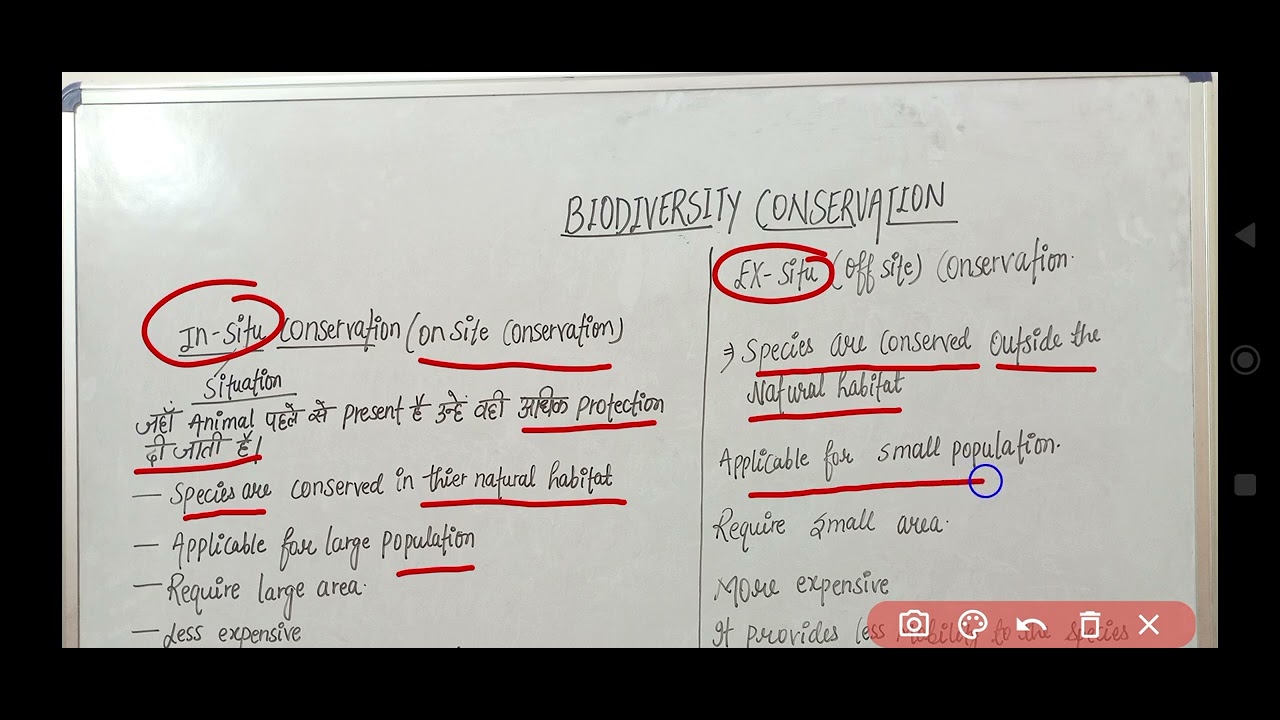 BIODIVERSITY CONSERVATION
In-situ Conservation (on site Conservation)
Situation
जहाँ Animal पहले से present हैं उन्हें वही अधिक Protection
दी जाती है।
— Species are conserved in thier natural habitat
— Applicable for large population
— Require large area.
— Less expensive
EX-situ (off site) Conservation.
⇒ Species are Conserved Outside the
Natural habitat
Applicable for small population.
Require small area.
More expensive
It provides less Mobility to the species